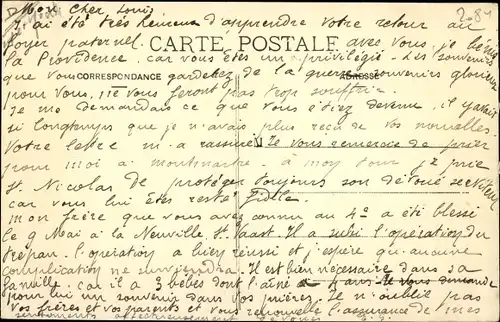 Mon cher Louis
J'ai été très heureux d'apprendre votre retour au
foyer paternel. avec vous, je bénis
CARTE POSTALE
la Providence, car vous êtes un privilégié. Les souvenirs
que vous garderez de la guerre souvenirs glorieux
CORRESPONDANCE
ADRESSE
pour vous, ne vous feront pas trop souffrir.
Je me demandais ce que vous étiez devenu il y avait
si longtemps que je n'avais plus reçu de vos nouvelles
Votre lettre m'a rassuré Je vous remercie de prier
pour moi à Montmartre à mon tour je prie
St. Nicolas de protéger toujours son dévoué serviteur
car vous lui êtes resté fidèle.
mon frère que vous avez connu au 4e a été blessé
le 9 Mai à la Neuville St. Vaast. Il a subi l'opération du
trépan. l'opération a bien réussi et j'espère qu'aucune
complication ne surviendra. Il est bien nécessaire dans sa
famille car il a 3 bébés dont l'aîné a 4 ans Je vous demande
pour lui un souvenir dans vos prières. Je n'oublie pas
vos frères et vos parents et vous renouvelle l'assurance de mes
sentiments affectueusement dévoués